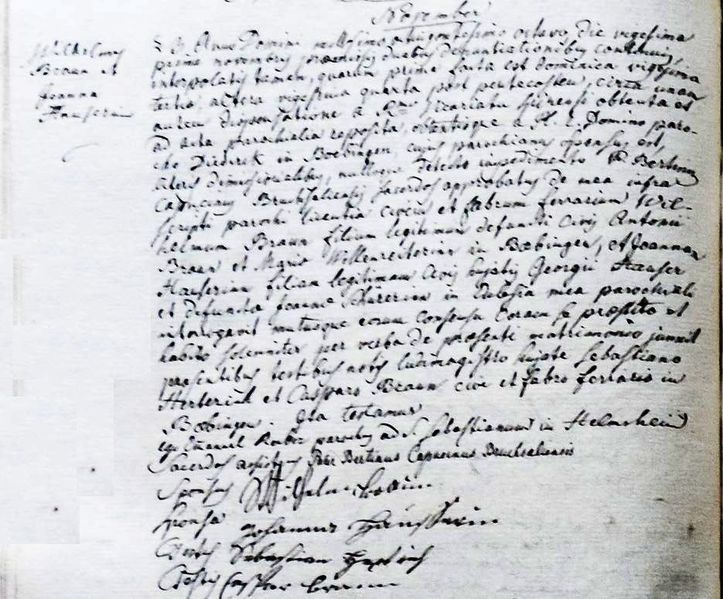 November
Wilhelmus
Braun et
Joanna
Hauserin
Anno Domini millesimo octingentesimo octavo, die vigesima
prima novembris praemissis duabus denuntiationibus continuis,
interpolatis tamen, quarum prima facta est dominica vigesima
tertia, altera vigesima quarta post pentecosten, circa unam
autem dispensatione a Rmo Vicariatu obtenta et
ad acta parochialia reposita, obtentisque a Domino paro-
cho Dieberik in Boebingen, cujus parochianus sponsus est,
literis dimissorialibus, nulloque detecto impedimento P. Bertinus
Capucinus Bruchsaliensis sacerdos approbatus de mea infra
scripti parochi licentia civem et fabrum ferrarium Wil-
helmum Braun filium legitimum defuncti civis Antonii
Braun et Maria in Boebingen, et Joannam
Hauserin filiam legitimam civis hujatis Georgii Hauser
et defuncta Joanna in Ecclesia mea parochiali
interrogavit mutuoque eorum consensu coram se praestito et
habito solemniter per verba de praesenti matrimonio junxit
praesentibus testibus notis ludimagistro hujate Sebastiano
et Casparo Braun cive et fabro ferrario in
Bobingen. Ita testamur
ego Emanuel parochus ad S. Sebastianum in Helmsheim
Sacerdos assistens Pater Bertinus Capucinus Bruchsaliensis
Sponsus Wilhelm Braun
Sponsa Johanna
Testis Sebastian
Testis Casper Braun